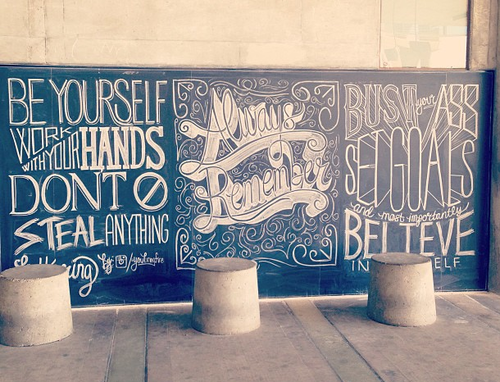 BE YOURSELF
WORK
WITH YOUR HANDS
DON'T
STEAL ANYTHING
by
Always
Remember
BUST your ASS
SET GOALS
and most importantly
BELIEVE
IN
ELF